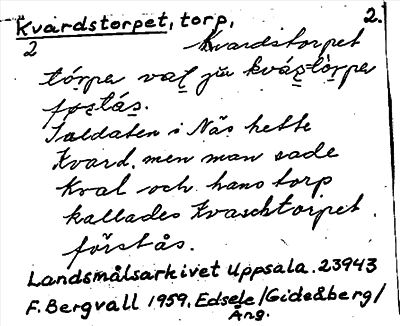 Kvardstorpet, torp, 2.
2 Kvardstorpet
Soldaten i Näs hette
Kvard, men man sade
Kval och hans torp
kallades Kvaschtorpet
förstås.
Landsmålsarkivet Uppsala. 23943
F. Bergvall 1959. Edsele/Gideåberg/
Ång.